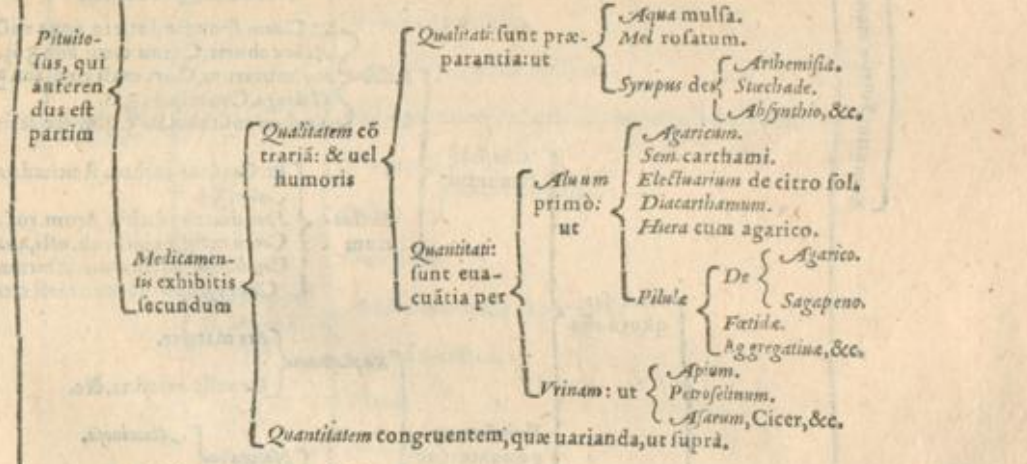 Pituito-
sus, qui
auferen
dus est
partim
Medicamen-
tis exhibitis
secundum
Qualitatem cō
trariā: & uel
humoris
Qualitati: sunt præ-
parantia: ut
Aqua mulsa.
Mel rosatum.
Syrupus de
Arthemisia.
Stœchade.
Absynthio, &c.
Quantitati:
sunt eua-
cuātia per
Aluum
primò:
ut
Agaricum.
Sem. carthami.
Electuarium de citro sol.
Diacarthamum.
Hiera cum agarico.
Pilulæ
De
Agarico.
Sagapeno.
Fœtidæ.
Aggregatiuæ, &c.
Vrinam: ut
Apium.
Petroselinum.
Asarum, Cicer, &c.
Quantitatem congruentem, quæ uarianda, ut suprà.